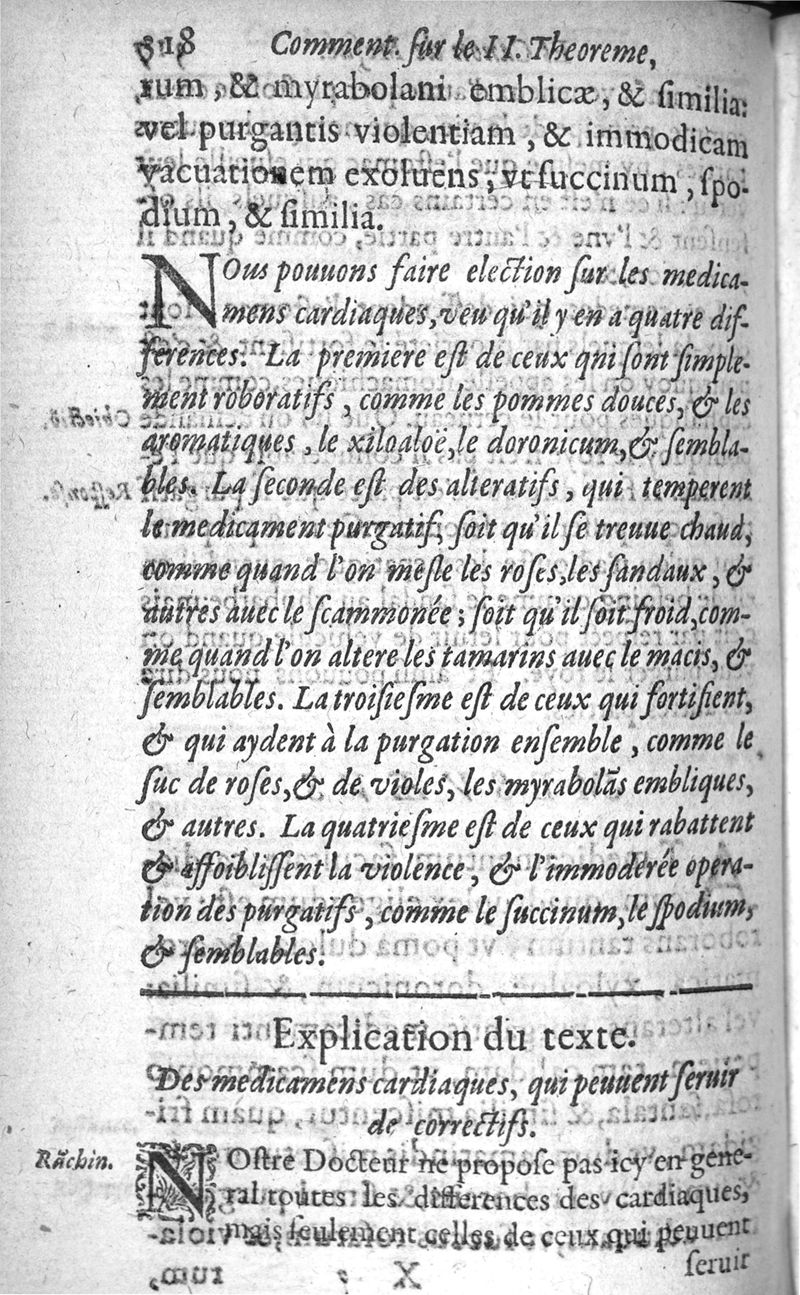 318 Comment. ſur le II. Theoreme,
rum, & myrabolani emblicæ, & ſimilia:
vel purgantis violentiam, & immodicam
vacuationem exoluens, vt ſuccinum, ſpo-
dium, & ſimilia.
NOus pouuons faire election ſur les medica-
mens cardiaques, veu qu'il y en a quatre dif-
ferences. La premiere eſt de ceux qui ſont ſimple-
ment roboratifs, comme les pommes douces, & les
aromatiques, le xiloaloë, le doronicum, & ſembla-
bles. La ſeconde eſt des alteratifs, qui temperent
le medicament purgatif, ſoit qu'il ſe treuue chaud,
comme quand l'on meſle les roſes, les ſandaux, &
autres auec le ſcammonée; ſoit qu'il ſoit froid, com-
me quand l'on altere les tamarins auec le macis, &
ſemblables. La troiſieſme eſt de ceux qui fortifient,
& qui aydent à la purgation enſemble, comme le
ſuc de roſes, & de violes, les myrabolãs embliques,
& autres. La quatrieſme eſt de ceux qui rabattent
& affoibliſſent la violence, & l'immoderée opera-
tion des purgatifs, comme le ſuccinum, le ſpodium,
& ſemblables.
Explication du texte.
Des medicamens cardiaques, qui peuuent ſeruir
de correctifs.
Rãchin.
NOſtre Docteur ne propoſe pas icy en gene-
ral toutes les differences des cardiaques,
mais ſeulement celles de ceux qui peuuent
ſeruir